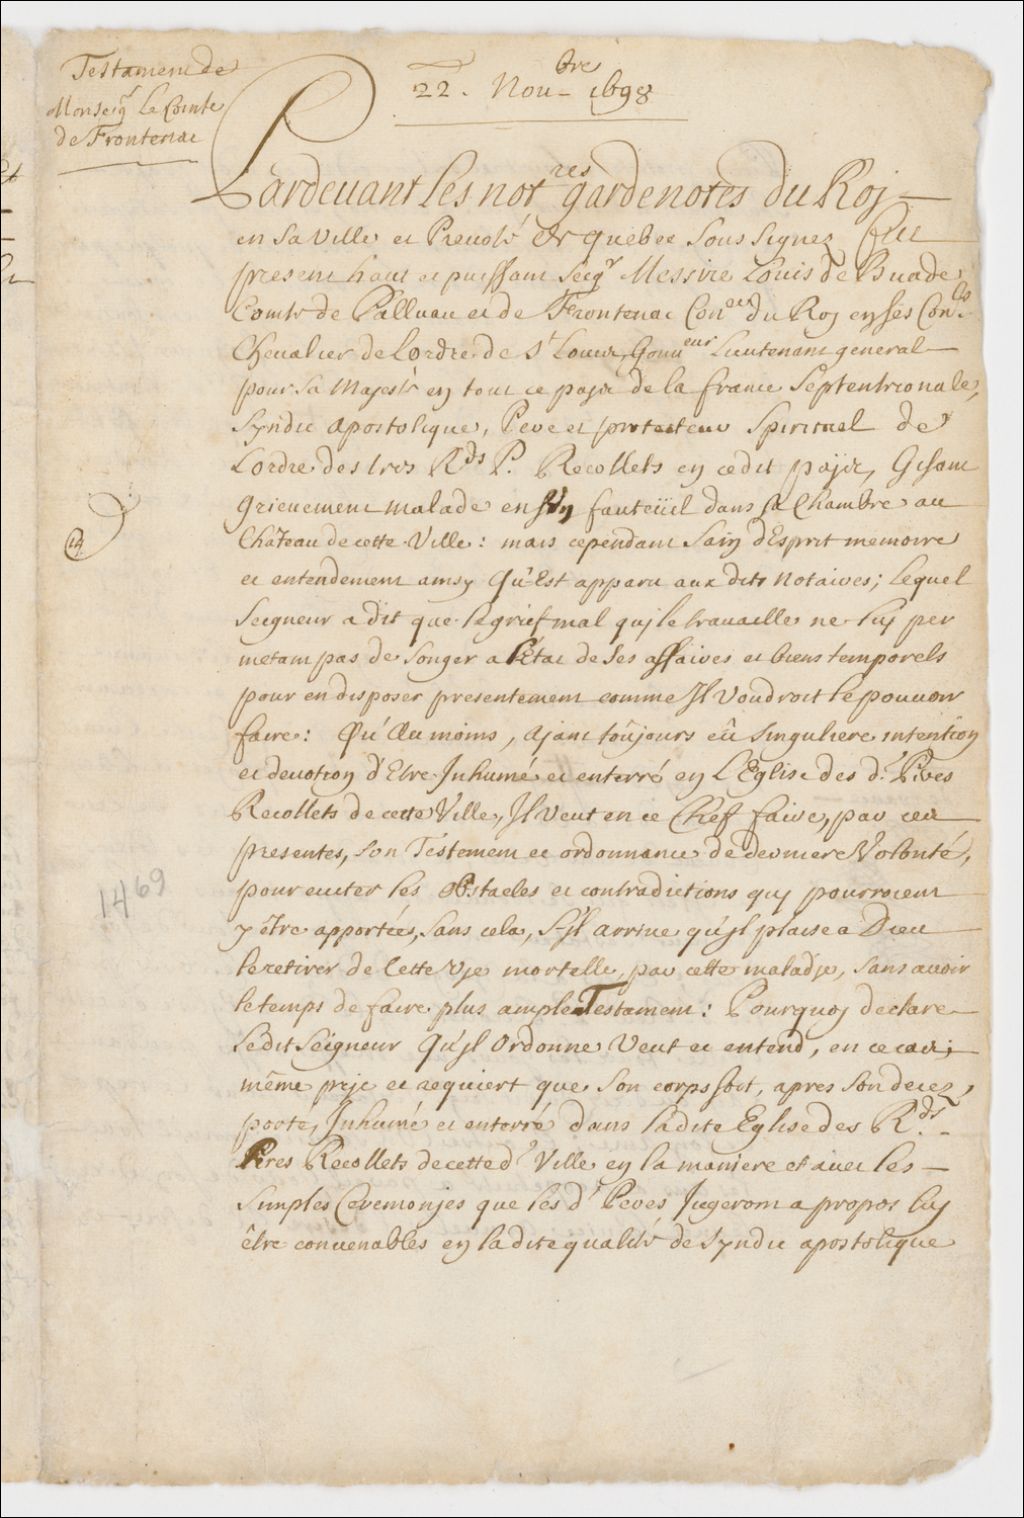 Testament de
Monseigr Le Comte
de Frontenac
22. Novbre 1698
Pardevant Les notres gardenotes du Roj
en Sa Ville et Prevosté de quebec Sous Signez fut
present haut et puissant Seigr Messire Louis de Buade
Comte de Palluau et de Frontenac Conder du Roy en ses Conls
Chevalier de Lordre de St Louis, Gouveur Lieutenant general
pour Sa Majesté en tout ce pays de la france Septentrionale,
Syndic apostolique, Pere et protecteur Spirituel de
Lordre des tres Rds P. Recollets en cedit pays, Gisant
grievement malade en son fauteüil dans sa Chambre au
Château de cette Ville: mais cependant Sain d'Esprit memoire
et entendement ainsy Qu'Est apparu aux dits Notaires; Lequel
Seigneur a dit que le grief mal quj le travaille ne luy per
metant pas de Songer a l'Etat de Ses affaires et biens temporels
pour en disposer presentement comme Jl Voudroit le pouvoir
faire: Qu'Au moins, ajant toûjours eû Singuliere intention
et devotion d'Etre Jnhumé et enterré en L'Eglise des d. Peres
Recollets de cette Ville, Jl Veut en ce Chef faire, par ces
presentes, Son Testement et ordonnance de derniere Volonté,
pour eviter les obstacles et contradictions quj pourroient
y être apportées, Sans cela, S'jl arrive qu'jl plaise a Dieu
le retirer de Cette Vje mortelle, par cette maladje, Sans avoir
le temps de faire plus ample Testament: Pourquoj declare
Ledit Seigneur Qu'jl Ordonne Veut et entend, en ce cas;
même prje et requiert que Son corps soit, apres Son decez,
porté, Jnhumé et enterré dans ladite Eglise des Rds
Peres Recollets de cette d. Ville en la maniere et avec les
Simples Ceremonjes que les d. Peres Jugeront a propos luj
être convenables en ladite qualité de Syndic apostolique
1469